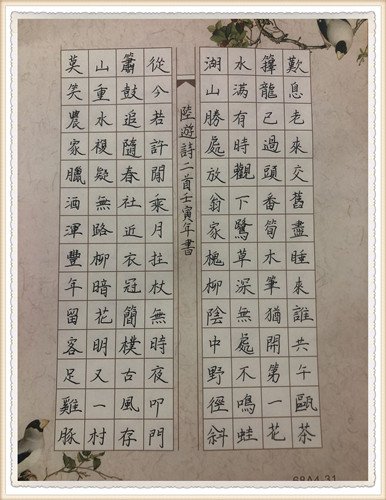 莫笑農家臘酒渾豐年留客足雞豚
山重水複疑無路柳暗花明又一村
簫鼓追隨春社近衣冠簡樸古風存
從今若許閒乘月拄杖無時夜叩門
陸遊詩二首壬寅年書
湖山勝處放翁家槐柳陰中野徑斜
水满有時觀下鷺草深無處不鳴蛙
籜龍已過頭番筍木筆猶開第一花
歎息老來交舊盡睡來誰共午甌茶